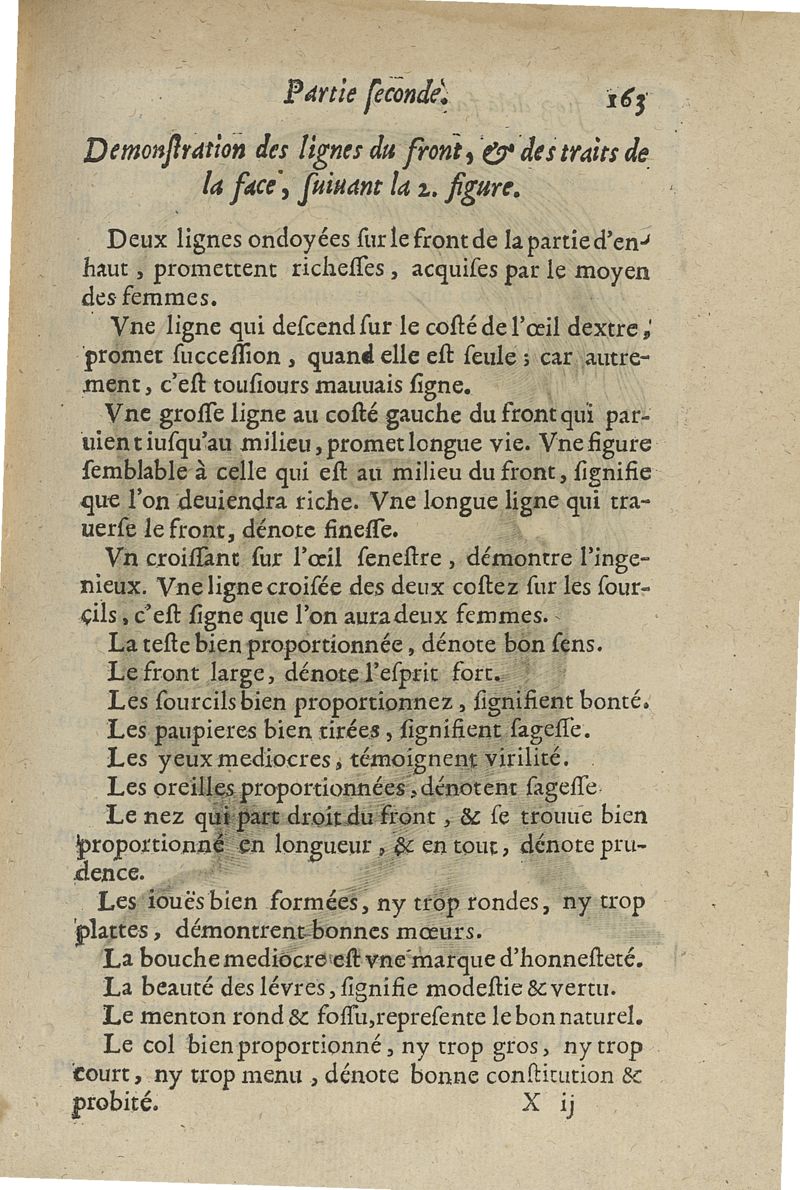 Partie ſeconde. 163
Demonſtration des lignes du front, & des traits de
la face, ſuiuant la 2. figure.
Deux lignes ondoyées ſur le front de la partie d'en-
haut, promettent richeſſes, acquiſes par le moyen
des femmes.
Vne ligne qui deſcend ſur le coſté de l'œil dextre,
promet ſucceſſion, quand elle eſt ſeule; car autre-
ment, c'eſt touſiours mauuais ſigne.
Vne groſſe ligne au coſté gauche du front qui par-
uient iuſqu'au milieu, promet longue vie. Vne figure
ſemblable à celle qui eſt au milieu du front, ſignifie
que l'on deuiendra riche. Vne longue ligne qui tra-
uerſe le front, dénote fineſſe.
Vn croiſſant ſur l'œil ſeneſtre, démontre l'inge-
nieux. Vne ligne croiſée des deux coſtez ſur les ſour-
çils, c'eſt ſigne que l'on aura deux femmes.
La teſte bien proportionnée, dénote bon ſens.
Le front large, dénote l'eſprit fort.
Les ſourcils bien proportionnez, ſignifient bonté.
Les paupieres bien tirées, ſignifient ſageſſe.
Les yeux mediocres, témoignent virilité.
Les oreilles proportionnées, dénotent ſageſſe.
Le nez qui part droit du front, & ſe trouue bien
proportionné en longueur, & en tout, dénote pru-
dence.
Les iouës bien formées, ny trop rondes, ny trop
plattes, démontrent bonnes mœurs.
La bouche mediocre eſt vne marque d'honneſteté.
La beauté des lévres, ſignifie modeſtie & vertu.
Le menton rond & foſſu, repreſente le bon naturel.
Le col bien proportionné, ny trop gros, ny trop
court, ny trop menu, dénote bonne conſtitution &
probité. X ij